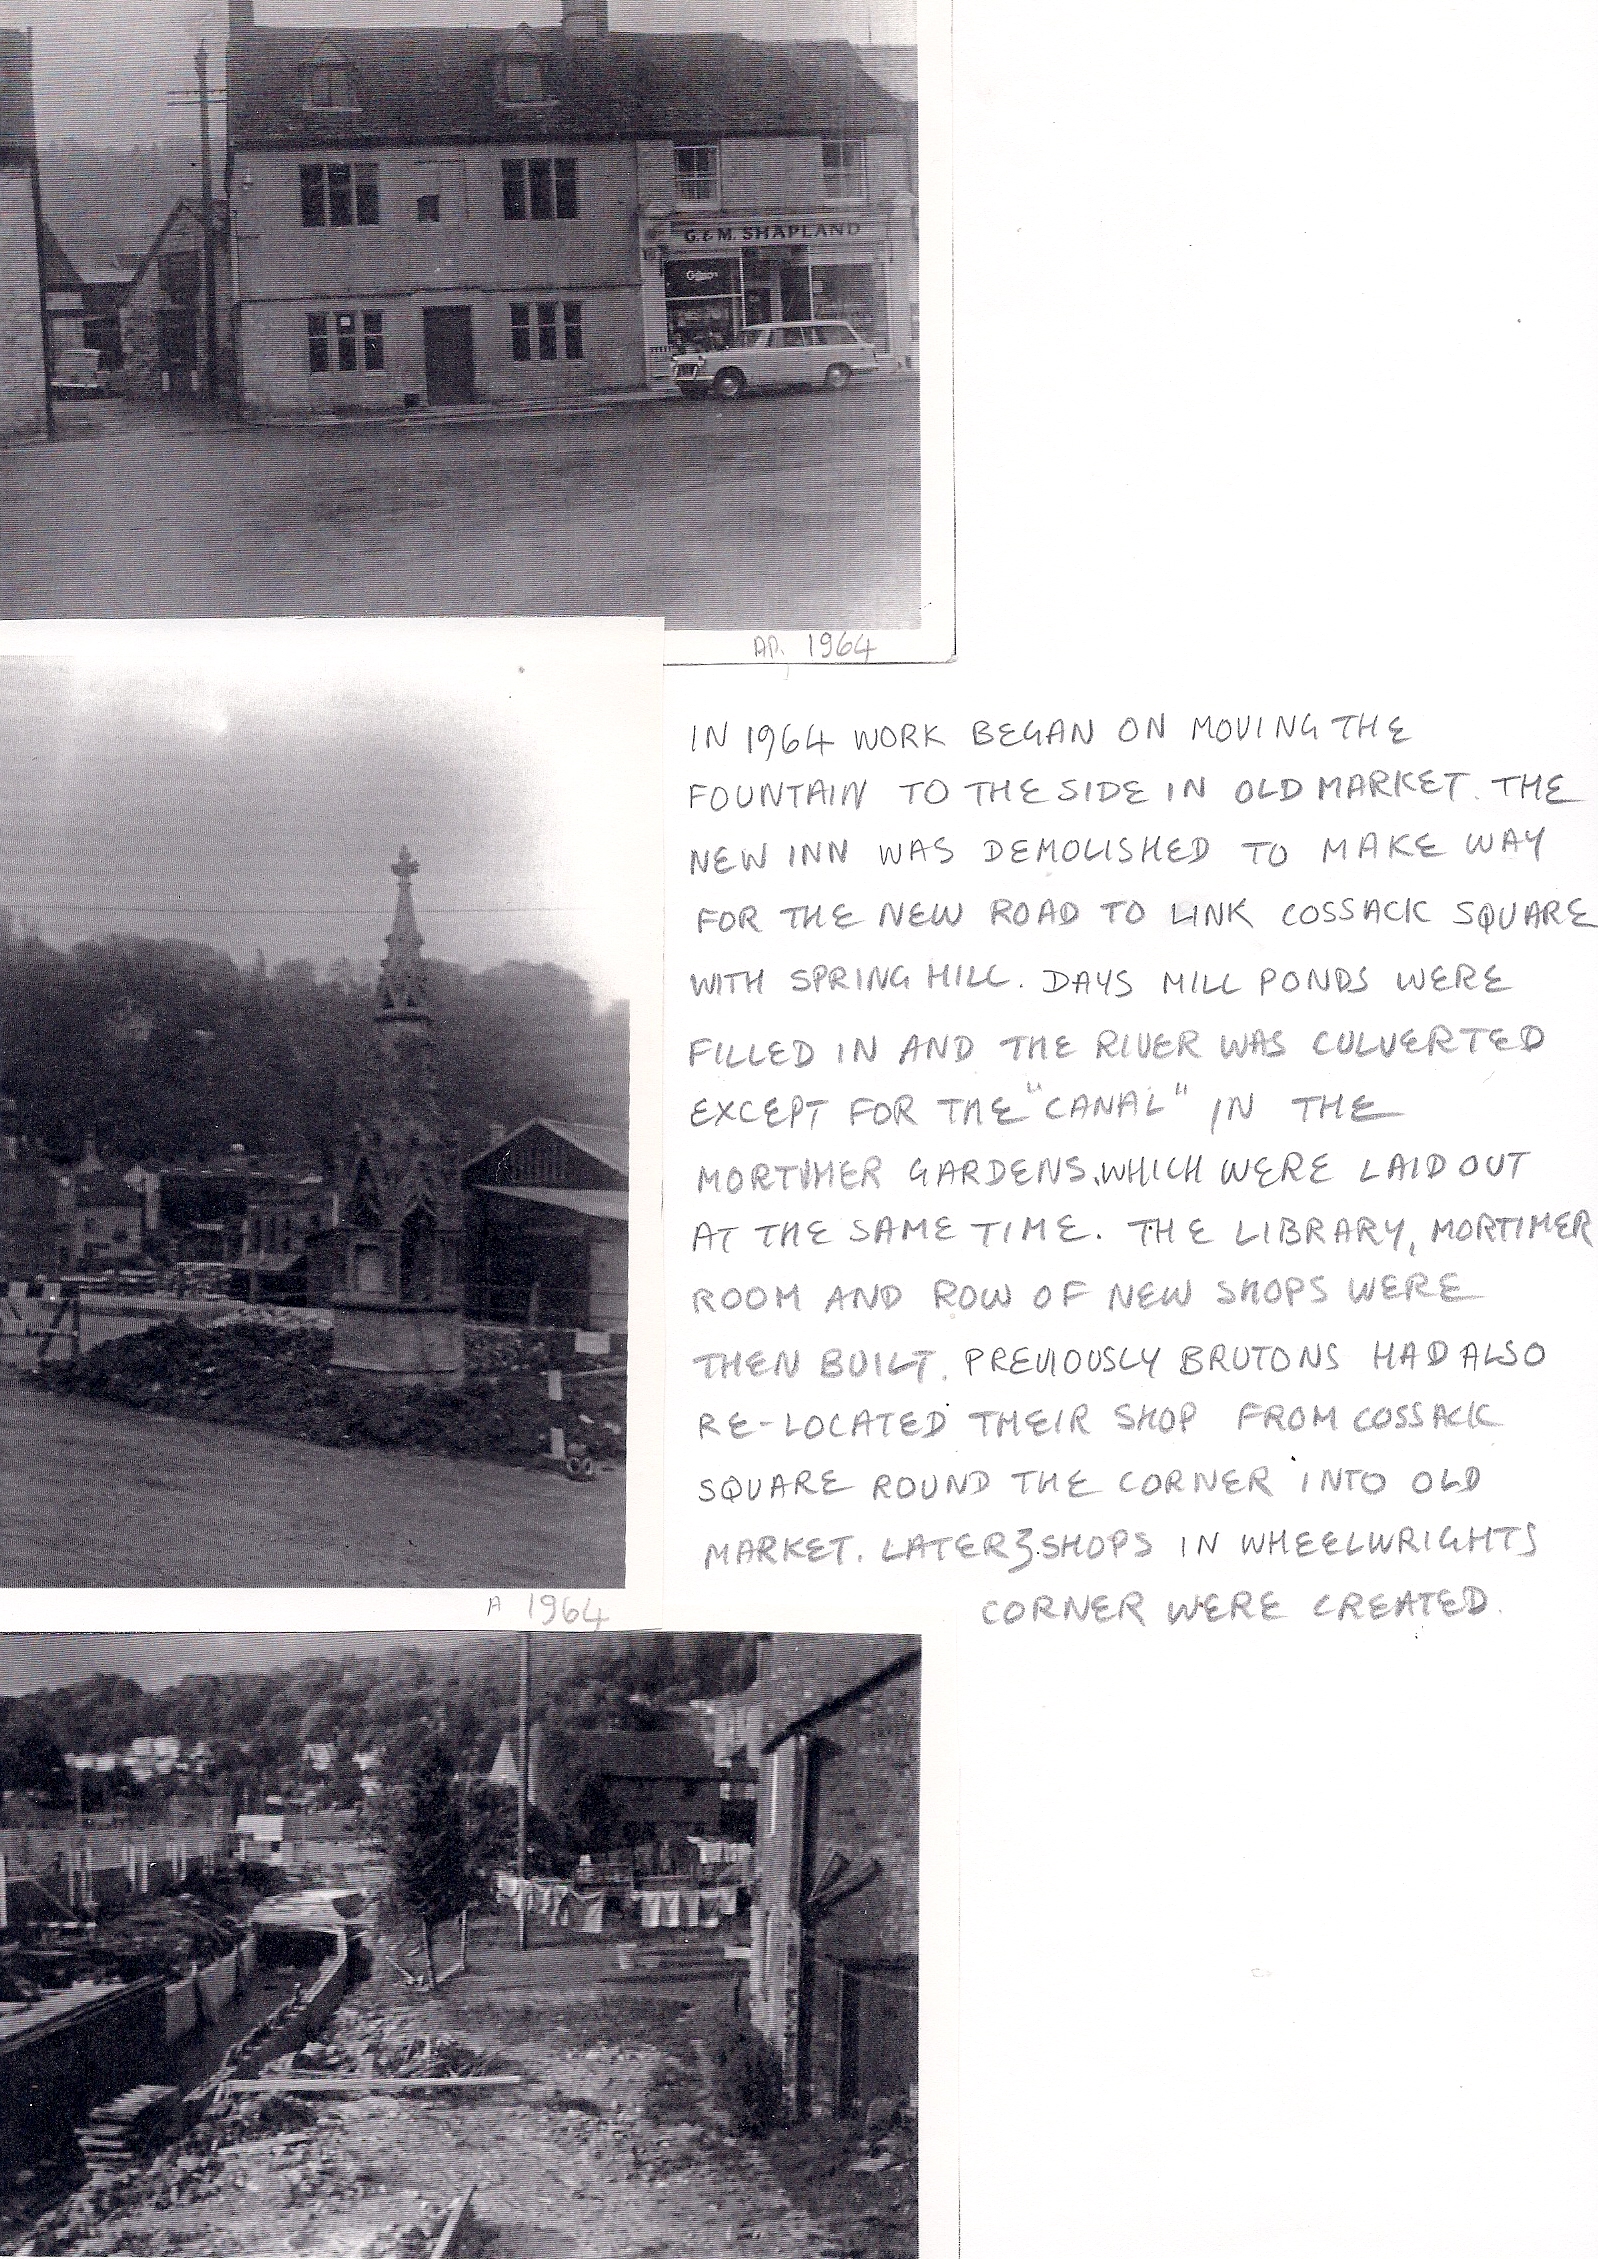 G. & M. SHAPLAND
AP. 1964
IN 1964 WORK BEGAN ON MOVING THE
FOUNTAIN TO THE SIDE IN OLD MARKET. THE
NEW INN WAS DEMOLISHED TO MAKE WAY
FOR THE NEW ROAD TO LINK COSSACK SQUARE
WITH SPRING HILL. DAYS MILL PONDS WERE
FILLED IN AND THE RIVER WAS CULVERTED
EXCEPT FOR THE "CANAL" IN THE
MORTIMER GARDENS. WHICH WERE LAID OUT
AT THE SAME TIME. THE LIBRARY, MORTIMER
ROOM AND ROW OF NEW SHOPS WERE
THEN BUILT. PREVIOUSLY BRUTONS HAD ALSO
RE-LOCATED THEIR SHOP FROM COSSACK
SQUARE ROUND THE CORNER INTO OLD
MARKET. LATER 3 SHOPS IN WHEELWRIGHTS
CORNER WERE CREATED.
A 1964